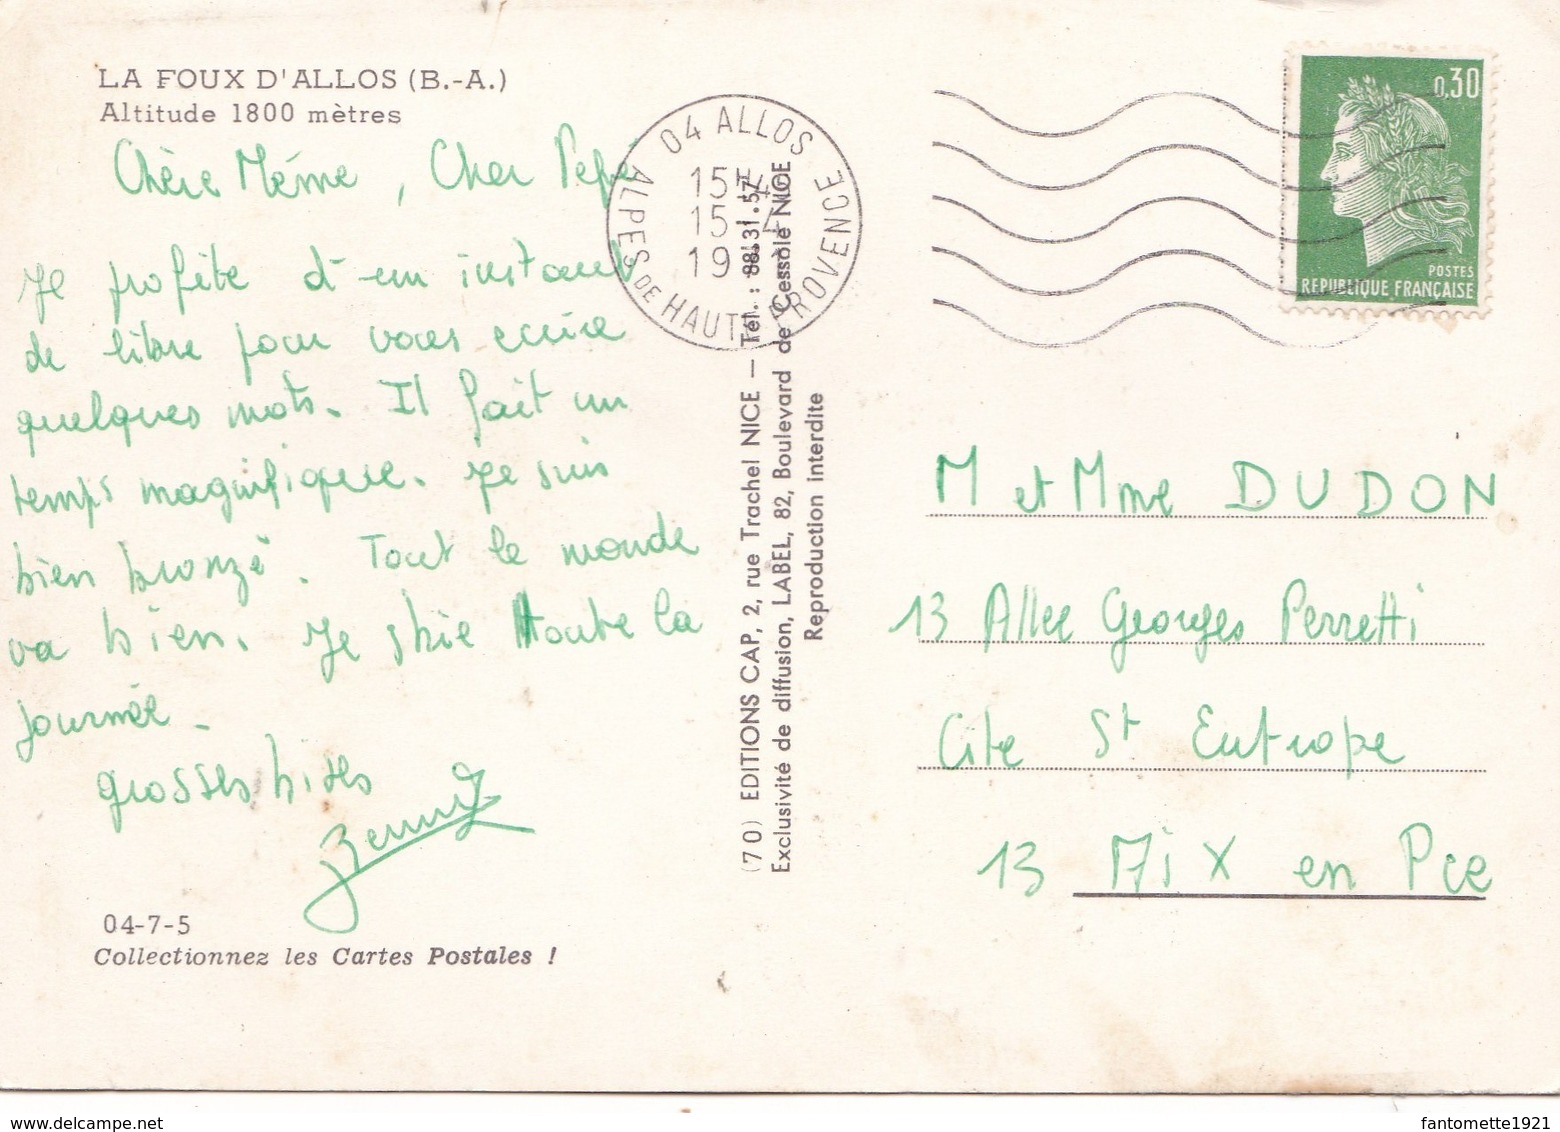 LA FOUX D'ALLOS (B.-A.)
Altitude 1800 mètres
Chère Mémé, Cher Pepe
Je profite d'un instant
de libre pour vous ecrire
quelques mots. Il fait un
temps magnifique. Je suis
bien bronzé. Tout le monde
va bien. Je skie toute la
journée.
grosses bises
04-7-5
Collectionnez les Cartes Postales !
04 ALLOS
ALPES DE HAUTE PROVENCE
15 H
15 - 4
19
(70) EDITIONS CAP, 2, rue Trachel NICE — Tél. : 88.31.57
Exclusivité de diffusion, LABEL, 82, Boulevard de Cessole NICE
Reproduction interdite
0,30
POSTES
REPUBLIQUE FRANÇAISE
M et Mme DUDON
13 Allee Georges Perretti
Cite St Eutrope
13 AiX en Pce
delcampe.net
fantomette1921